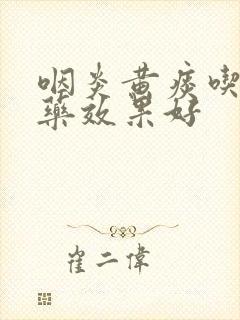 咽炎黄痰喫
藥效果好
崔二偉